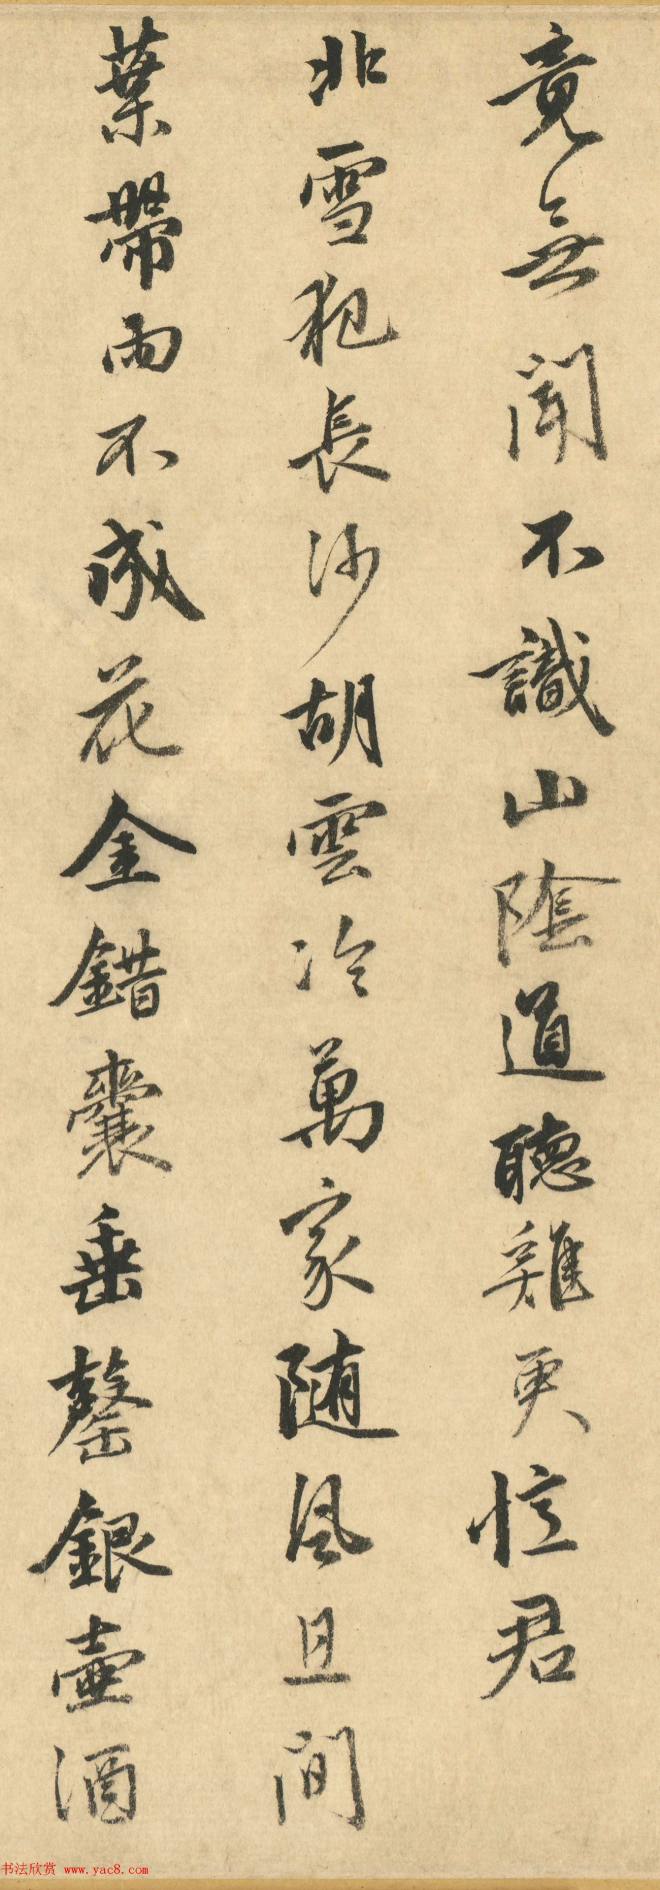 竟無聞不識山陰道聽雞更憶君
北雪犯長沙胡雲冷萬家随風且間
葉帶雨不成花金錯囊垂罄銀壺酒
书法欣赏 www.yac8.com